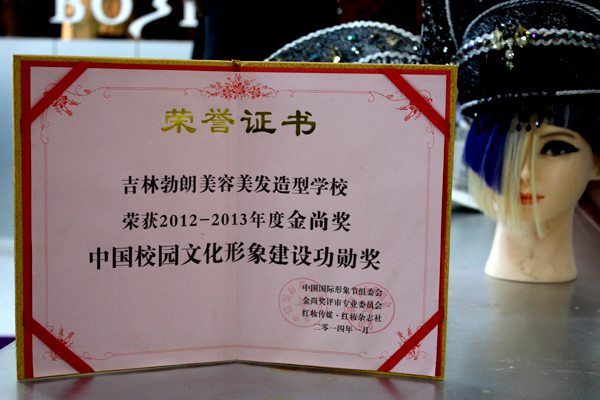 荣誉证书
吉林勃朗美容美发造型学校
荣获2012-2013年度金尚奖
中国校园文化形象建设功勋奖
中国国际形象节组委会
金尚奖评审专业委员会
红妆传媒·红妆杂志社
二〇一四年一月